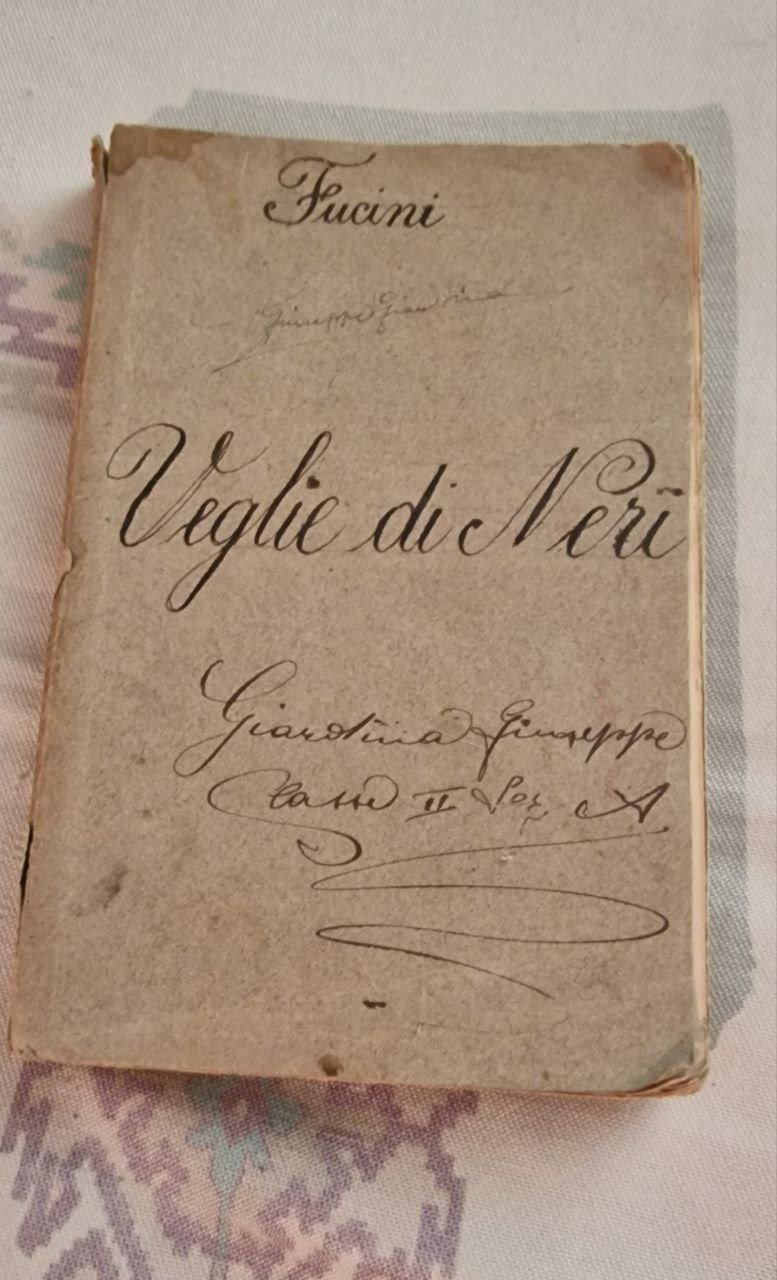 Fucini
Giuseppe Giardina
Veglie di Neri
Giardina Giuseppe
Classe II Sez. A